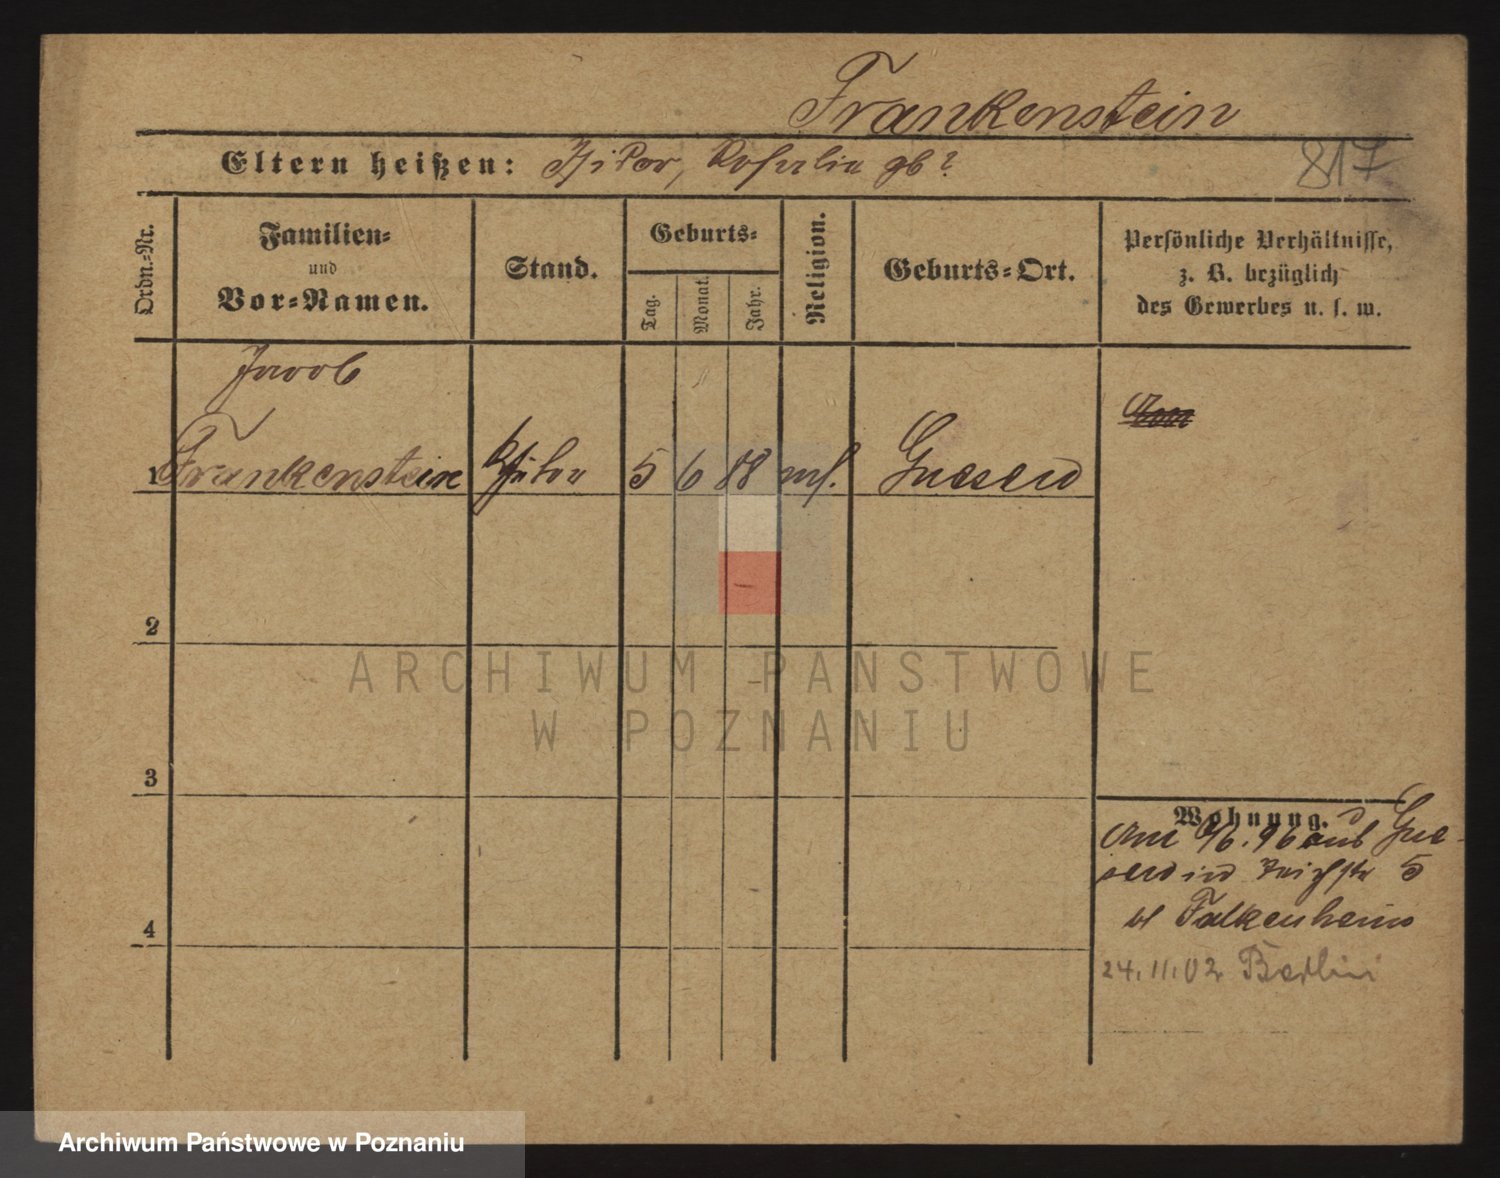 Frankenstein
Eltern heißen: Isidor, Rosalie gb?
817
Ordn.-Nr.
Familien-
und
Vor-Namen.
Stand.
Geburts-
Tag.
Monat.
Jahr.
Religion.
Geburts-Ort.
Persönliche Verhältnisse,
z. B. bezüglich
des Gewerbes u. s. w.
Jacob
1 Frankenstein Schüler 5 6 88 mos. Gnesen
2
3
4
Wohnung.
96 aus Gne-
sen in 5
Falkenheim
24.11.02 Berlin
ARCHIWUM PAŃSTWOWE
W POZNANIU
Archiwum Państwowe w Poznaniu